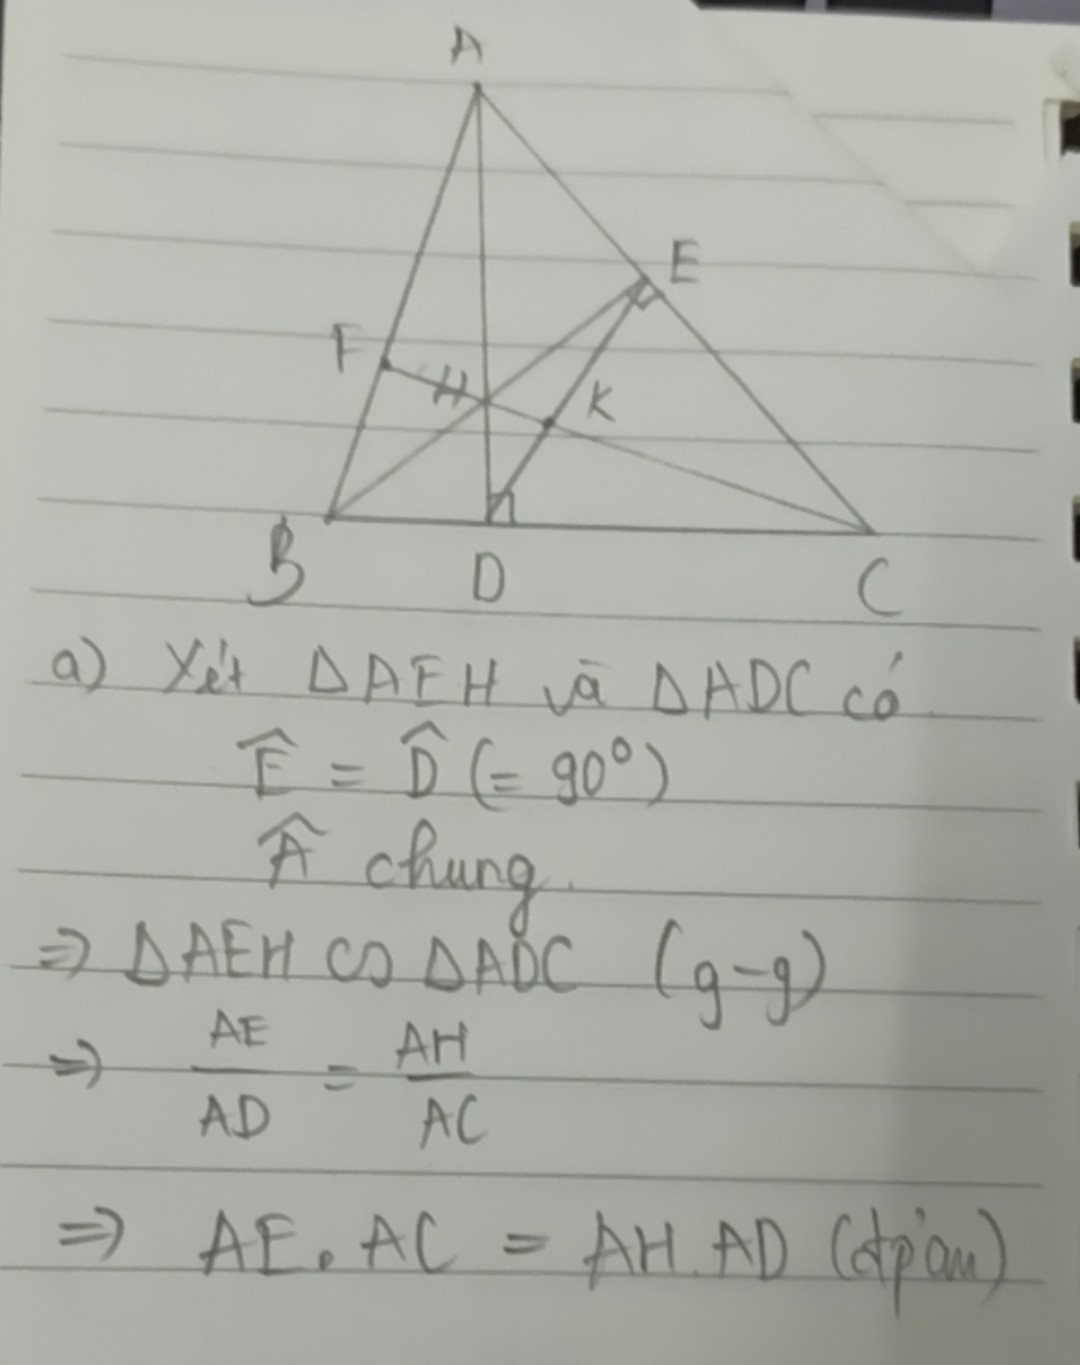 A
E
F
H
K
B D C
a) Xét ΔAEH và ΔADC có
Ê = D̂ (= 90°)
Â chung.
=> ΔAEH ∽ ΔADC (g-g)
=> AE/AD = AH/AC
=> AE.AC = AH.AD (đpcm)